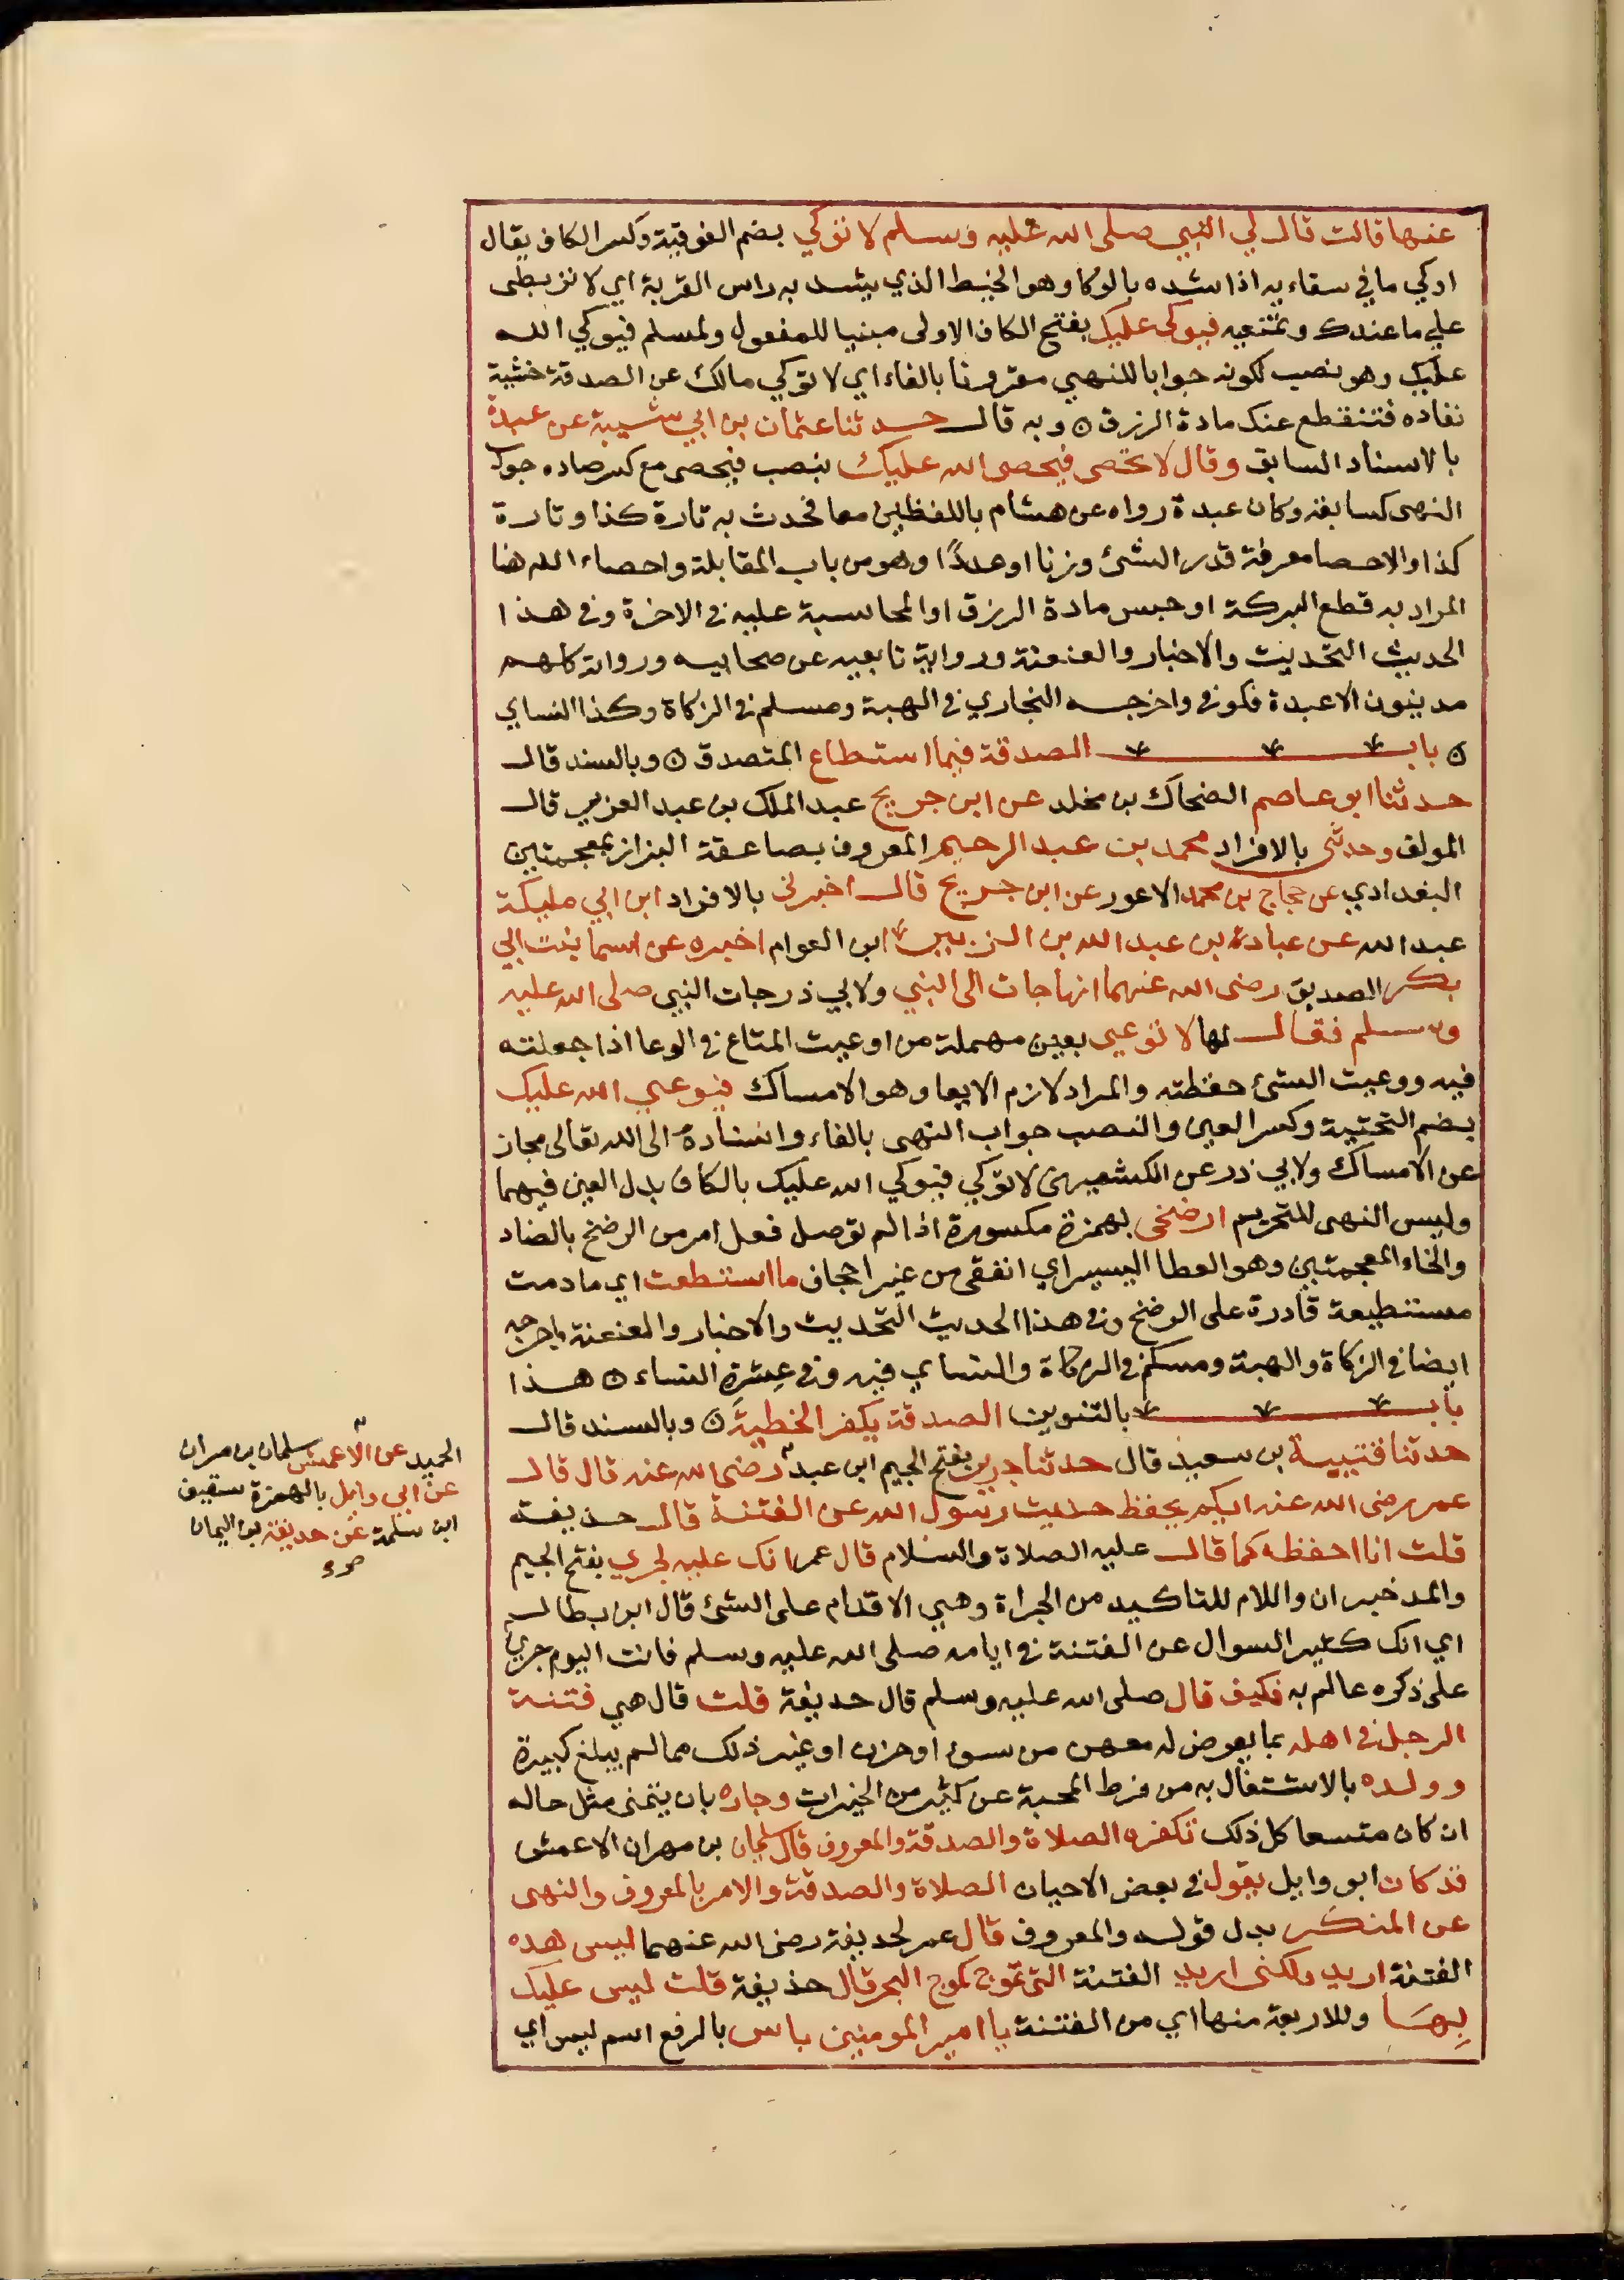 عنها قالت قال لي النبي صلى الله عليه وسلم لا توكي بضم الفوقية وكسر الكاف يقال
اوكي ما في سقاءيه اذا شده بالوكا وهو الخيط الذي يشد به راس القربة اي لا تربطي
علي ما عندك وتمنعيه فيوكى عليك بفتح الكاف الاولى مبنيا للمفعول ولمسلم فيوكي الله
عليك وهو نصب لكونه جوابا للنهي مقرونا بالفاء اي لا توكي مالك عن الصدقة خشية
نفاده فتنقطع عنك مادة الرزق ۞ وبه قال حدثنا عثمان بن ابي شيبة عن عبدة
بالاسناد السابق وقال لا تحصي فيحصي الله عليك بنصب فيحصي مع كسر صاده جواب
النهي كسابقه وكان عبدة رواه عن هشام باللفظين معا فحدث به تارة كذا وتارة
كذا والاحصا معرفة قدر الشئ وزنا او عددًا وهو من باب المقابلة واحصاء الله هنا
المراد به قطع البركة او حبس مادة الرزق او المحاسبة عليه في الاخرة وفي هذا
الحديث التحديث والاخبار والعنعنة ورواية تابعيه عن صحابيه ورواته كلهم
مدينون الا عبدة فكوفي واخرجه البخاري في الهبة ومسلم في الزكاة وكذا النساي
۞ باب الصدقة فيما استطاع المتصدق ۞ وبالسند قال
حدثنا ابو عاصم الضحاك بن مخلد عن ابن جريج عبد الملك بن عبد العزيز قال
المولف وحدثني بالافراد محمد بن عبد الرحيم المعروف بصاعقة البزاز بمعجمتين
البغدادي عن حجاج بن محمد الاعور عن ابن جريج قال اخبرني بالافراد ابن ابي مليكة
عبد الله عن عبادة بن عبد الله بن الزبير ابن العوام اخبره عن اسما بنت ابي
بكر الصديق رضى الله عنهما انها جات الى النبي ولابي ذر جات النبي صلى الله عليه
وسلم فقال لها لا توعي بعين مهملة من اوعيت المتاع في الوعا اذا جعلته
فيه ووعيت الشئ حفظته والمراد لازم الايعا وهو الامساك فيوعي الله عليك
بضم التحتية وكسر العين والنصب جواب النهي بالفاء واسناده الى الله تعالى مجاز
عن الامساك ولابي ذر عن الكشميهني لا توكي فيوكي الله عليك بالكاف بدل العين فيهما
وليس النهي للتحريم ارضخي بهمزة مكسورة اذا لم توصل فعل امر من الرضخ بالضاد
والخاء المعجمتين وهو العطا اليسير اي انفقي من غير اجحاف ما استطعت اي ما دمت
مستطيعة قادرة على الرضخ وفي هذا الحديث التحديث والاخبار والعنعنة واخرجه
ايضا في الزكاة والهبة ومسلم في الزكاة والنساي فيه وفي عِشْرَةِ النساء ۞ هذا
باب بالتنوين الصدقة يكفر الخطيئة ۞ وبالسند قال
حدثنا قتيبة بن سعيد قال حدثنا جرير بفتح الجيم ابن عبد رضى الله عنه قال قال
عمر رضى الله عنه ايكم يحفظ حديث رسول الله عن الفتنة قال حذيفة
قلت انا احفظه كما قال عليه الصلاة والسلام قال عمر انك عليه لجري بفتح الجيم
والمد خبر ان واللام للتاكيد من الجراة وهي الاقدام على الشئ قال ابن بطال
اي انك كثير السوال عن الفتنة في ايامه صلى الله عليه وسلم فانت اليوم جري
على ذكره عالم به فكيف قال صلى الله عليه وسلم قال حذيفة قلت قال هي فتنة
الرجل في اهله بما يعرض له معهن من سوء او حزن او غير ذلك مما لم يبلغ كبيرة
وولده بالاشتغال به من فرط المحبة عن كثير من الخيرات وجاره بان يتمنى مثل حاله
ان كان متسعا كل ذلك تكفره الصلاة والصدقة والمعروف قال سليمان بن مهران الاعمش
قد كان ابو وايل يقول في بعض الاحيان الصلاة والصدقة والامر بالمعروف والنهي
عن المنكر بدل قوله والمعروف قال عمر لحذيفة رضى الله عنهما ليس هذه
الفتنة اريد ولكني اريد الفتنة التي تموج كموج البحر قال حذيفة قلت ليس عليك
بِهَا وللاربعة منها اي من الفتنة يا امير المومنين باس بالرفع اسم ليس اي
الحميد عن الاعمش سلمان بن مهران
عن ابي وايل بالهمزة شقيق
ابن سلمة عن حذيفة بن اليمان
صح